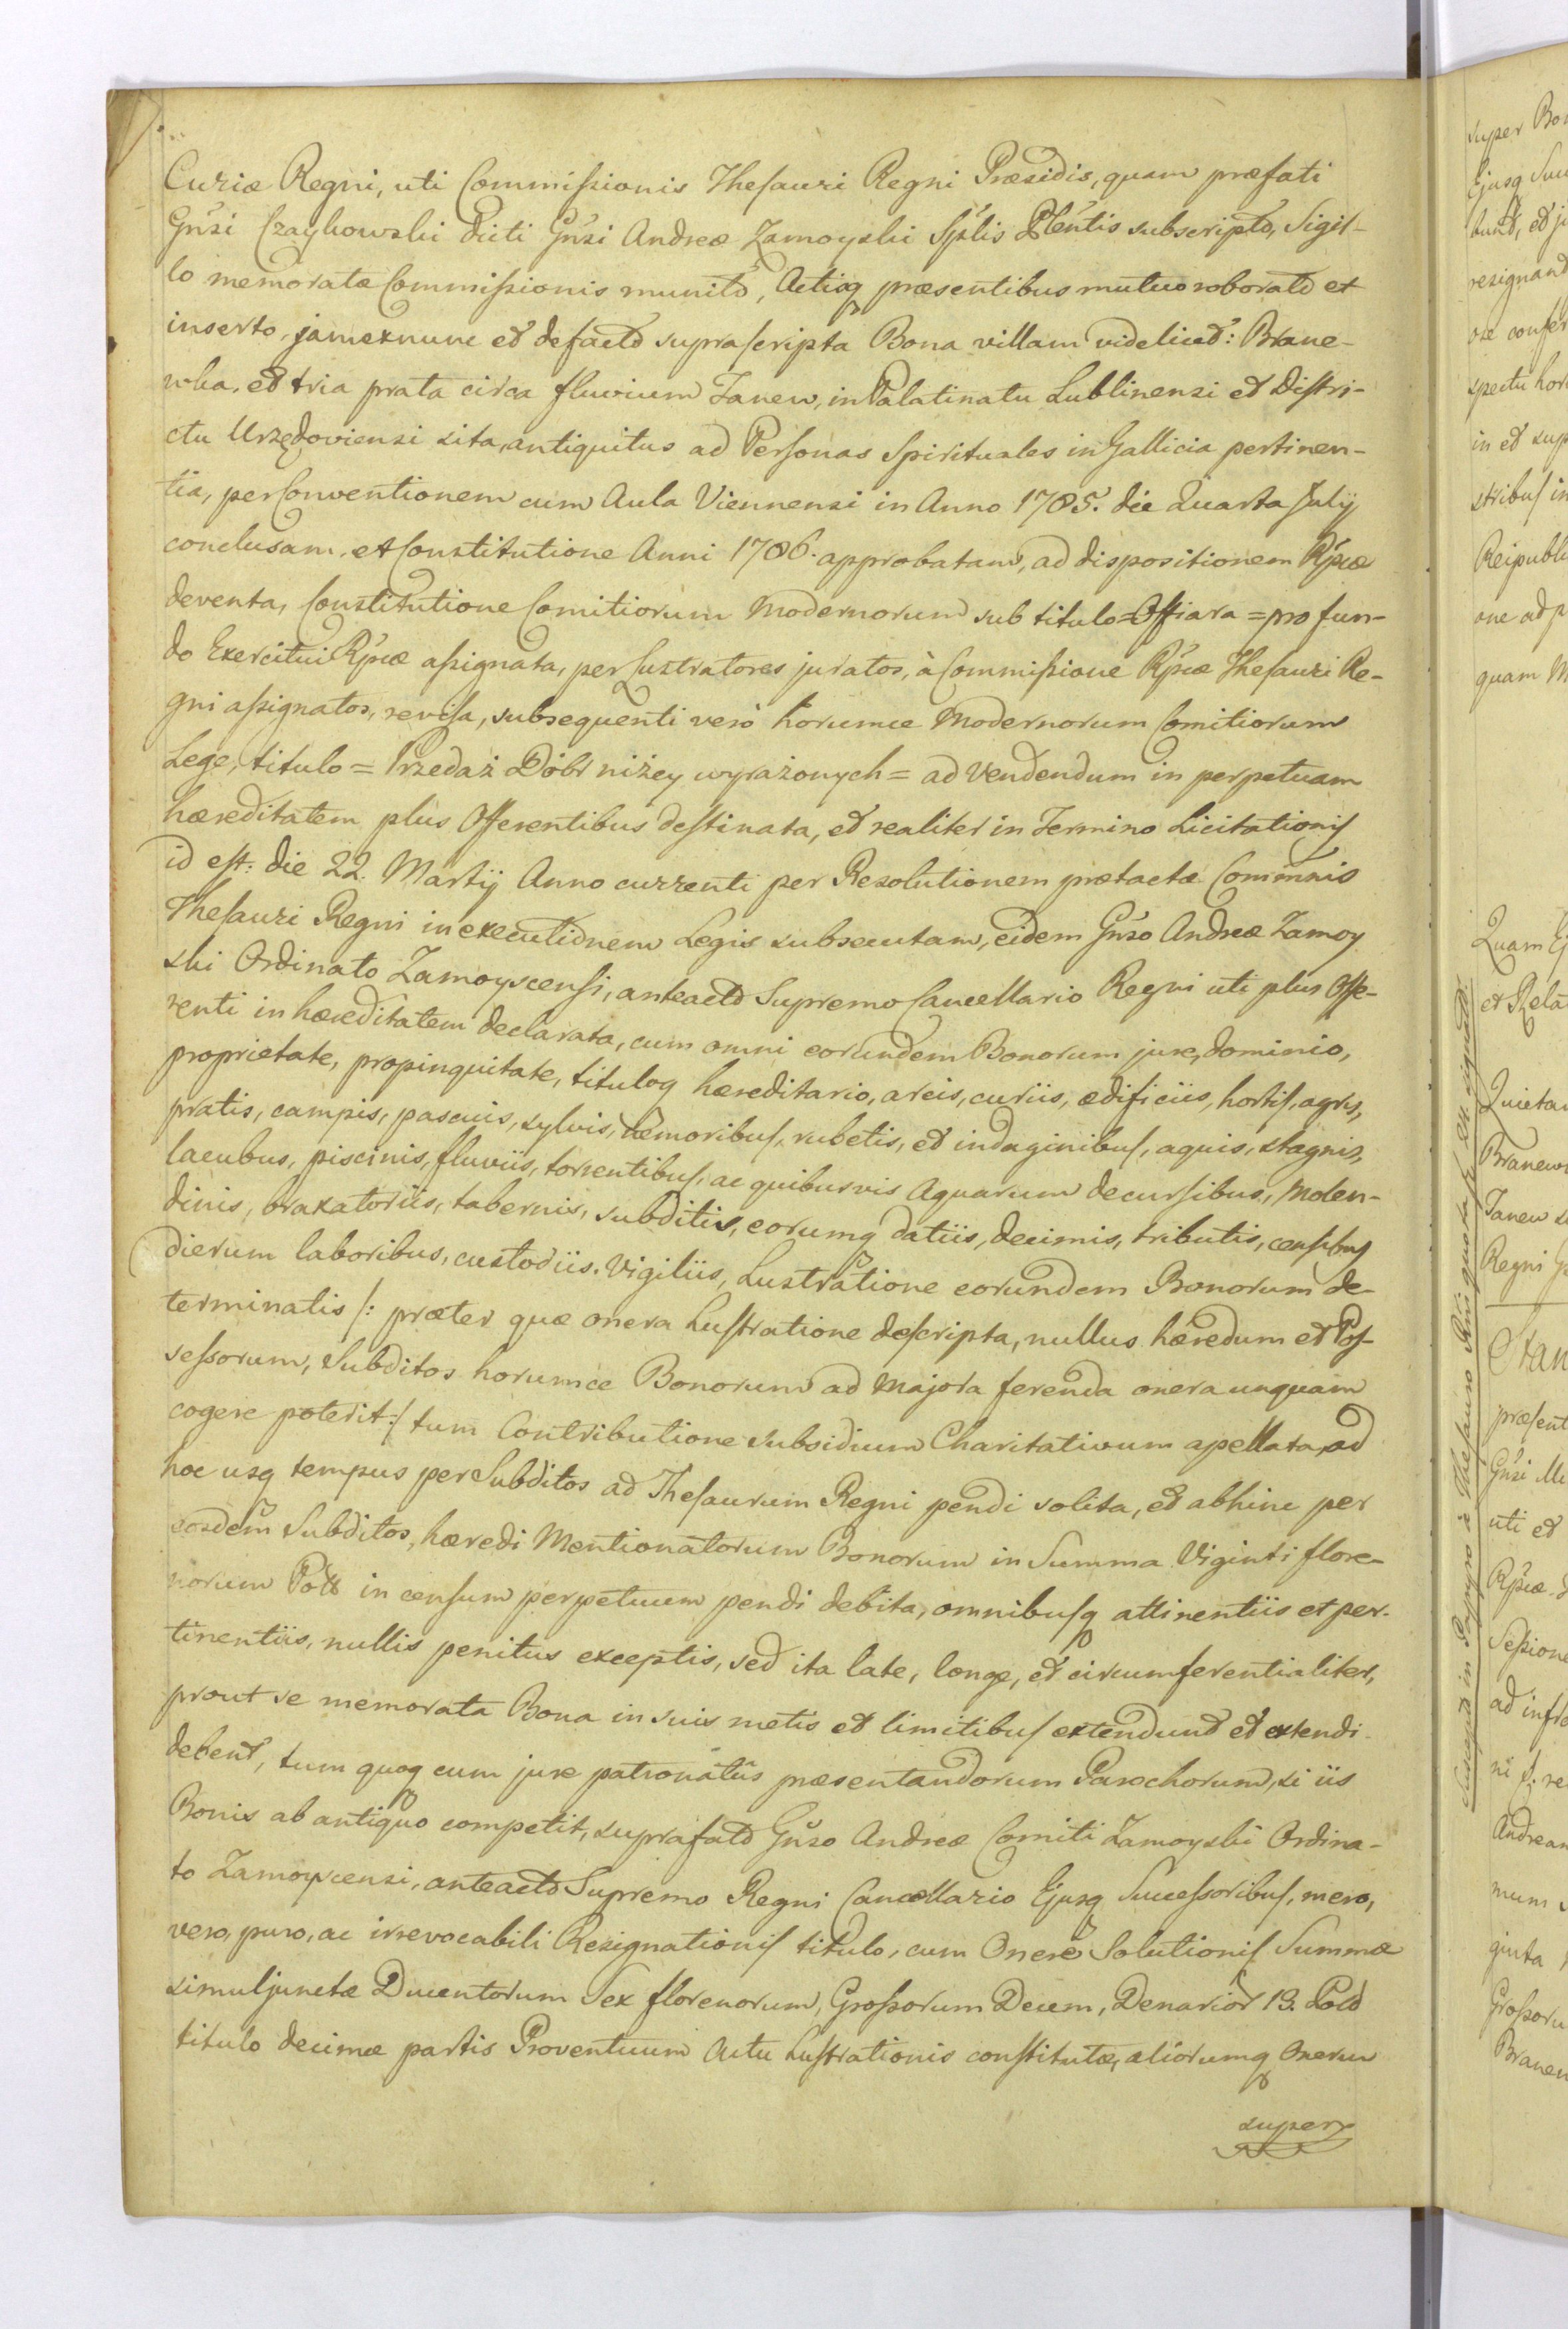 Curiæ Regni, uti Commissionis Thesauri Regni Præsidis, quam præfati
Gnŕsi Czaykowski dicti Gnŕsi Andreæ Zamoyski Splis Plentis subscripto, Sigil-
lo memoratæ Commissionis munito, Actisq præsentibus mutuo roborato et
inserto, jam exnunc et defacto suprascripta Bona villam videlicet: Brane-
wka, et tria prata circa fluvium Tanew, in Palatinatu Lublinensi et Distri-
ctu Urzędoviensi sita, antiquitus ad Personas Spirituales in Gallicia pertinen-
tia, per Conventionem cum Aula Viennensi in Anno 1785. die Quarta July
conclusam, et Constitutione Anni 1786. approbatam, ad dispositionem Rpcæ
deventa, Constitutione Comitiorum Modernorum sub titulo = Offiara = pro fun-
do Exercitui Rpcæ assignata, per Lustratores juratos, à Commissione Rpcæ Thesauri Re-
gni assignatos, revisa, subsequenti verò horumce Modernorum Comitiorum
Lege, titulo = Przedaż Dóbr niżey wyrażonych = ad vendendum in perpetuam
hæreditatem plus Offerentibus destinata, et realiter in Termino Licitationis
id est: die 22. Martij Anno currenti per Resolutionem prætactæ Commnis
Thesauri Regni in executionem Legis subsecutam, eidem Gnŕso Andreæ Zamoy
ski Ordinato Zamoyscensi, anteacto Supremo Cancellario Regni uti plus Offe-
renti in hæreditatem declarata, cum omni eorundem Bonorum jure, dominio,
proprietate, propinquitate, tituloq hæreditario, areis, curiis, ædificiis, hortis, agris,
pratis, campis, pascuis, sylvis, nemoribus, rubetis, et indaginibus, aquis, stagnis,
lacubus, piscinis, fluviis, torrentibus, ac quibusvis aquarum decursibus, molen-
dinis, braxatoriis, tabernis, subditis, eorumq datiis, decimis, tributis, censibus
dierum laboribus, custodiis, vigiliis, Lustratione eorundem Bonorum de-
terminatis /: præter quæ onera Lustratione descripta, nullus hæredum et Pos-
sessorum, Subditos horumce Bonorum ad majora ferenda onera unquam
cogere poterit :/ tum Contributione subsidium Charitativum apellata, ad
hoc usq tempus per Subditos ad Thesaurum Regni pendi solita, et abhinc per
eosdem Subditos, hæredi Mentionatorum Bonorum in Summa Viginti flore-
norum Poll in censum perpetuum pendi debita, omnibusq attinentiis et per-
tinentiis, nullis penitus exceptis, sed ita late, longe, et circumferentialiter,
prout se memorata Bona in suis metis et limitibus extendunt et extendi
debent, tum quoq cum jure patronatûs præsentandorum Parochorum, si iis
Bonis ab antiquo competit, suprafato Gnŕso Andreæ Comiti Zamoyski Ordina-
to Zamoyscensi, anteacto Supremo Regni Cancellario Ejusq Successoribus, mero,
vero, puro, ac irrevocabili Resignationis titulo, cum Onere Solutionis Summæ
simuljunctæ Ducentorum Sex florenorum, Grossorum Decem, Denarior 13. Pold
titulo decimæ partis Proventuum Actu Lustrationis constitutæ, aliorumq Onerum
super
super Bo
Ejusq Suc
resignand
spectu hor
in et sup
stribus in
Reipubli
one ad p
quam M
Quam Ej
et Rela
Quietan
Branew
Tanew
Regni
Stan
præsent
Gnŕsi
uti et
Rpcæ
Sessione
ad infra
Andream
mum
ginta
Grossoru
Branew